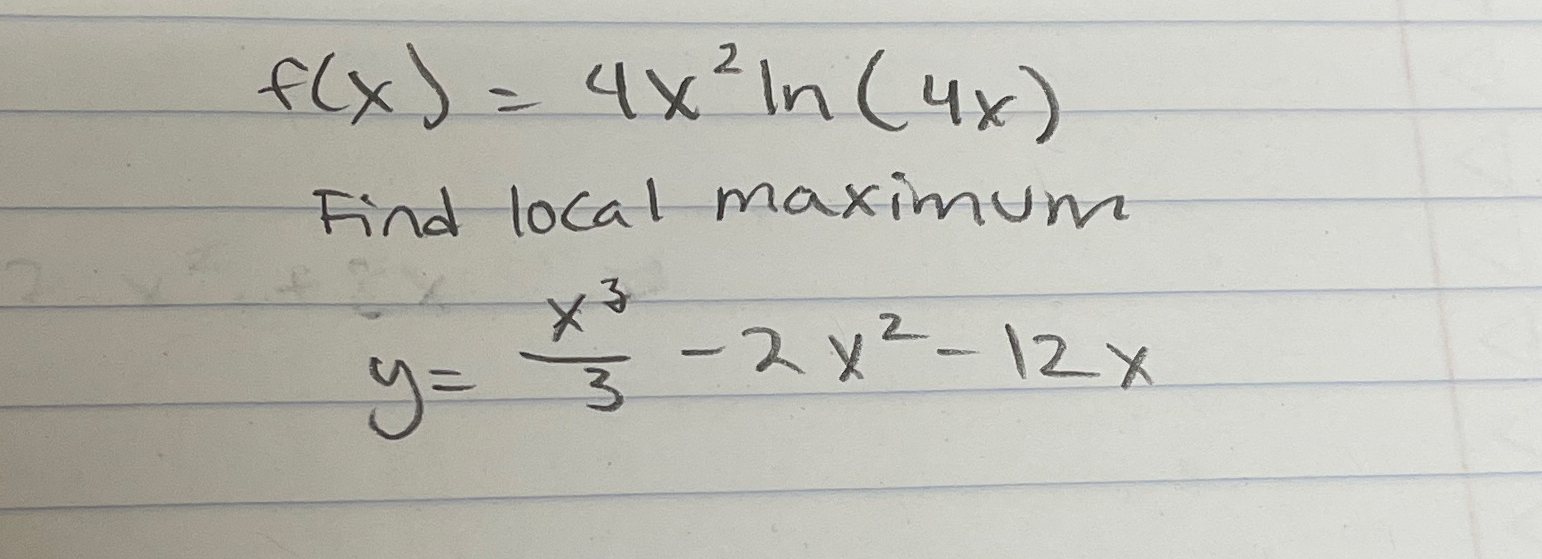 f(x) = 4x² ln(4x)
Find local maximum
y = x³/3 - 2x² - 12x